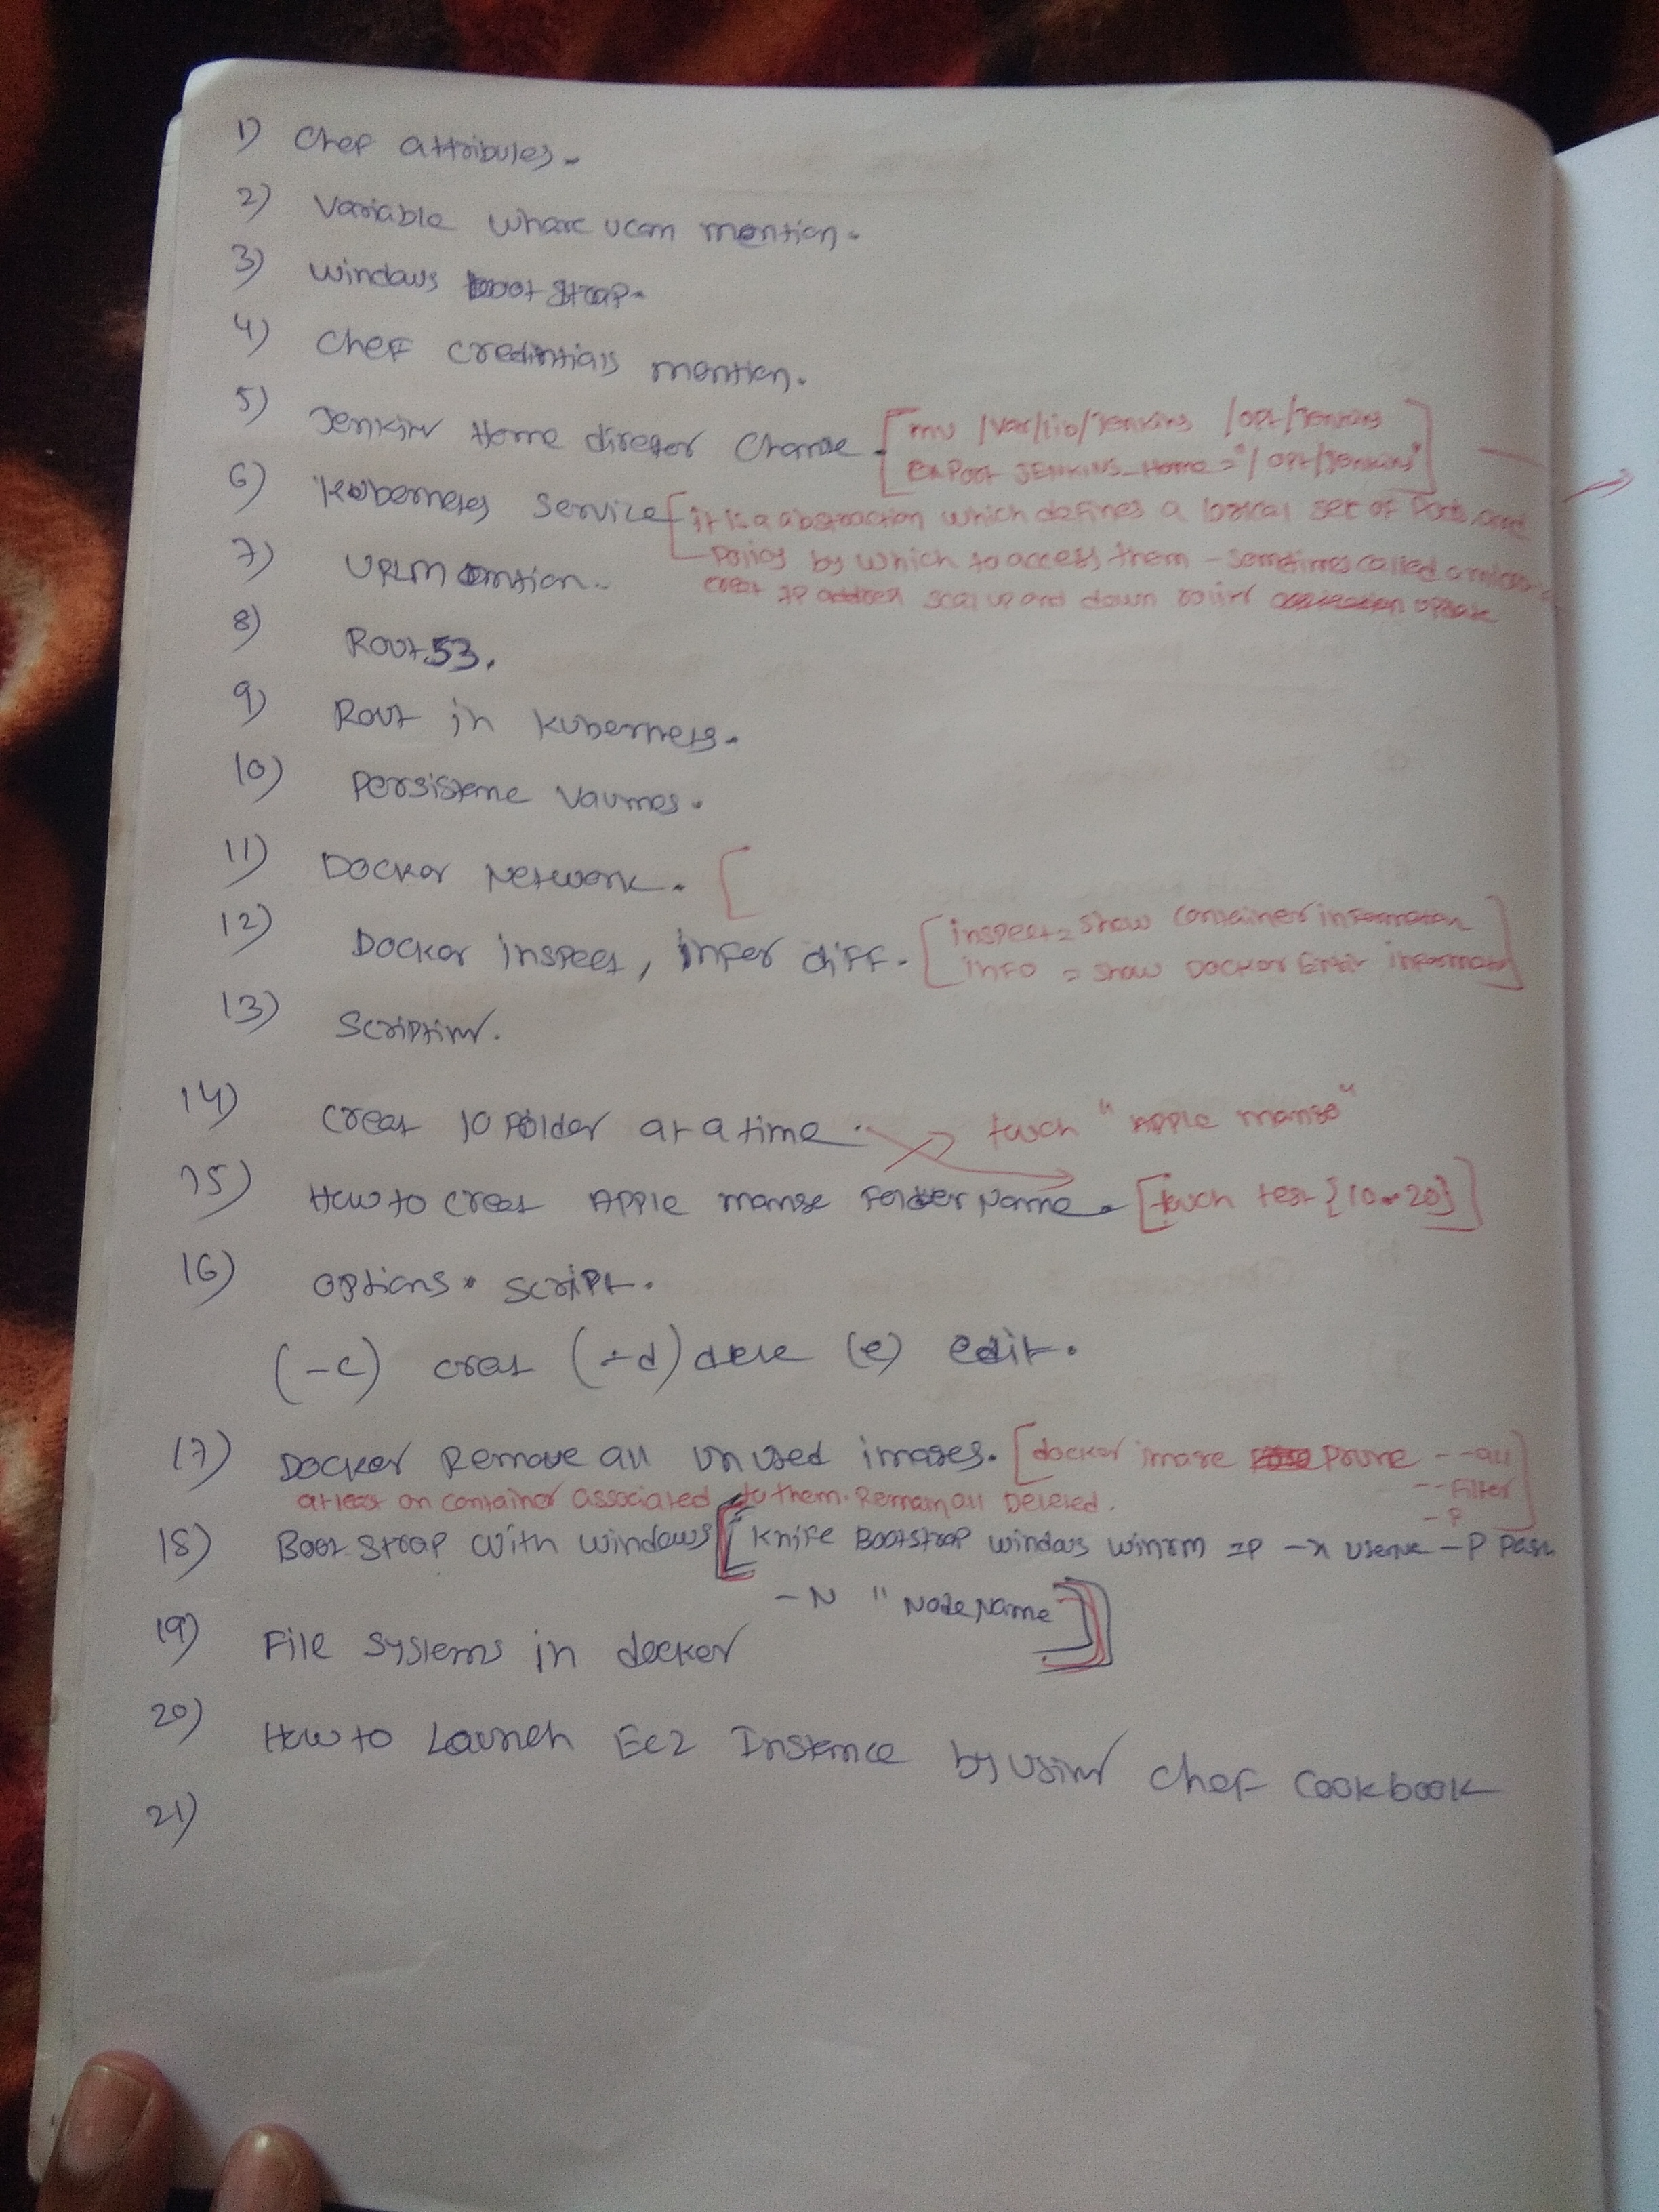 1) Chef attributes.
2) Variable Whare u can mention.
3) Windows boot strap.
4) Chef credintials mention.
5) Jenkins Home director Change. [mv /var/lib/Jenkins /opt/Jenkins
Export JENKINS_Home="/opt/Jenkins"]
6) Kubernetes Service [it is a abstraction which defines a logical set of Pods, and
Policy by which to access them - sometimes called a micro
creat IP address scal up and down update
7) URL mention.
8) Rout 53.
9) Rout in Kubernets.
10) Persistene Vaumes.
11) Docker Network. [
12) Docker inspect, infer diff. [inspect = show container information
info = show Docker Entir information]
13) Scripting.
14) Creat 10 Folder at a time. touch "Apple mango"
15) How to creat Apple mango Folder Name. [touch test {10..20}]
16) options. script.
(-c) creat (-d) dele (e) edit.
17) Docker Remove all un used images. [docker image Prune --all
--Filter
atleast on container associated to them. Remain all Deleted.
18) Boot-strap with windows [Knife Bootstrap windows winrm IP -x userne -P Pass
-N "NodeName]
19) File systems in docker
20) How to Launch Ec2 Instence by using Chef Cookbook
21)